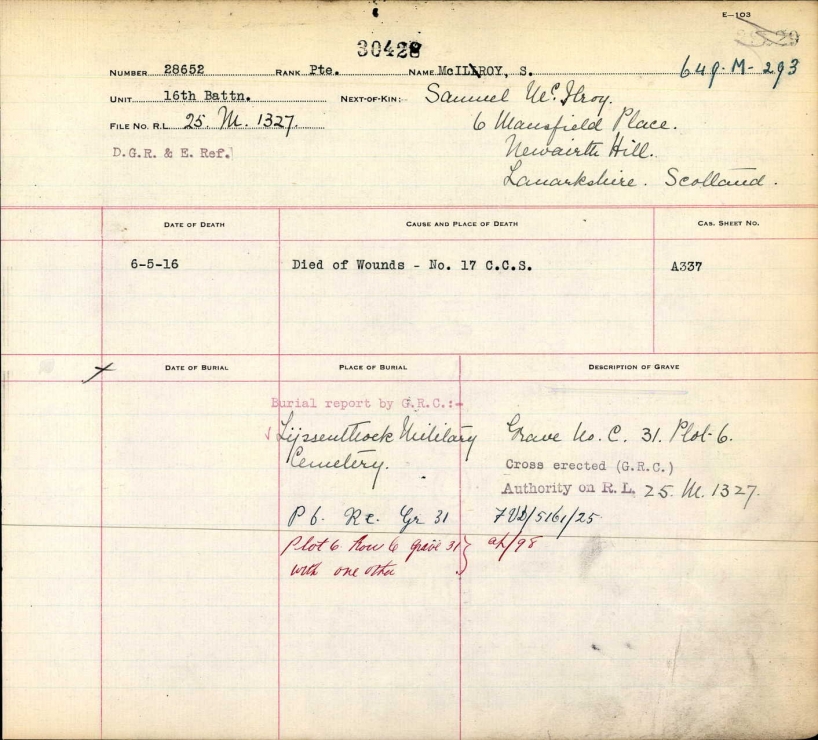 E-103
30428
NUMBER 28652 RANK Pte. NAME McILROY, S. 649-M-293
UNIT 16th Battn. NEXT-OF-KIN:- Samuel McIlroy.
FILE NO. R.L. 25. M. 1327. 6 Mansfield Place.
D.G.R. & E. Ref. Newairth Hill.
Lanarkshire. Scotland.
DATE OF DEATH CAUSE AND PLACE OF DEATH CAS. SHEET NO.
6-5-16 Died of Wounds - No. 17 C.C.S. A337
DATE OF BURIAL PLACE OF BURIAL DESCRIPTION OF GRAVE
Burial report by G.R.C.:-
Lijssenthoek Military Grave No. C. 31. Plot 6.
Cemetery. Cross erected (G.R.C.)
Authority on R.L. 25. M. 1327.
P 6. R c. Gr 31 /5161/25
Plot 6 Row 6 grave 31 /98
with one other